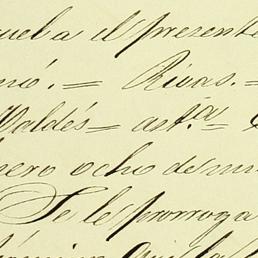 uel a el presente
mó.= Rivas.=
Valdés= ast.ª
nero ocho de mi
Se les prorroga